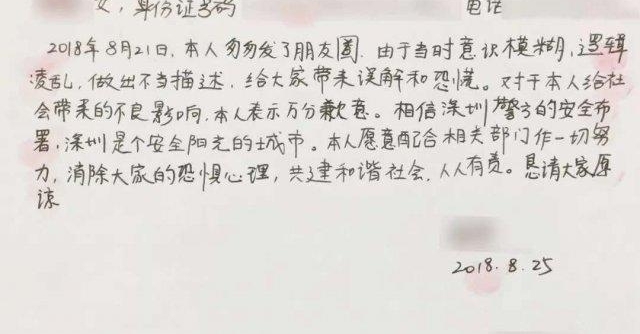 女，身份证号码 电话
2018年8月21日，本人匆匆发了朋友圈，由于当时意识模糊，逻辑
凌乱，做出不当描述，给大家带来误解和恐慌。对于本人给社
会带来的不良影响，本人表示万分歉意。相信深圳警方的安全布
署，深圳是个安全阳光的城市。本人愿意配合相关部门作一切努
力，消除大家的恐惧心理，共建和谐社会，人人有责。恳请大家原
谅
2018.8.25